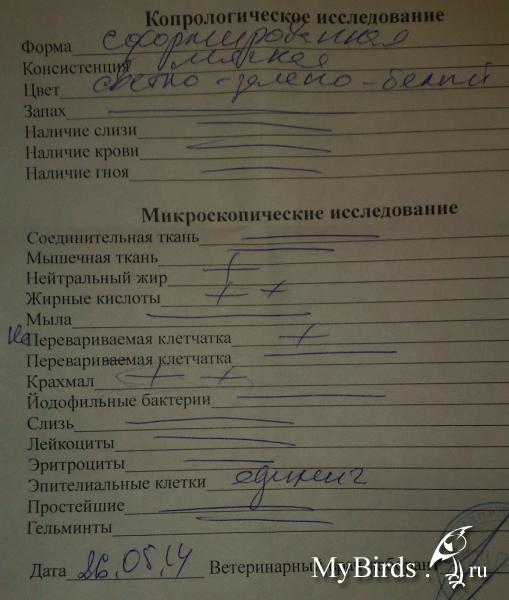 Копрологическое исследование
Форма сформированная
Консистенция мягкая
Цвет светло-зелено-белый
Запах —
Наличие слизи —
Наличие крови —
Наличие гноя —
Микроскопические исследование
Соединительная ткань —
Мышечная ткань —
Нейтральный жир +
Жирные кислоты + +
Мыла —
Не Перевариваемая клетчатка +
Перевариваемая клетчатка —
Крахмал + +
Йодофильные бактерии —
Слизь —
Лейкоциты —
Эритроциты —
Эпителиальные клетки единич
Простейшие —
Гельминты —
Дата 26.05.14 Ветеринарный
MyBirds.ru